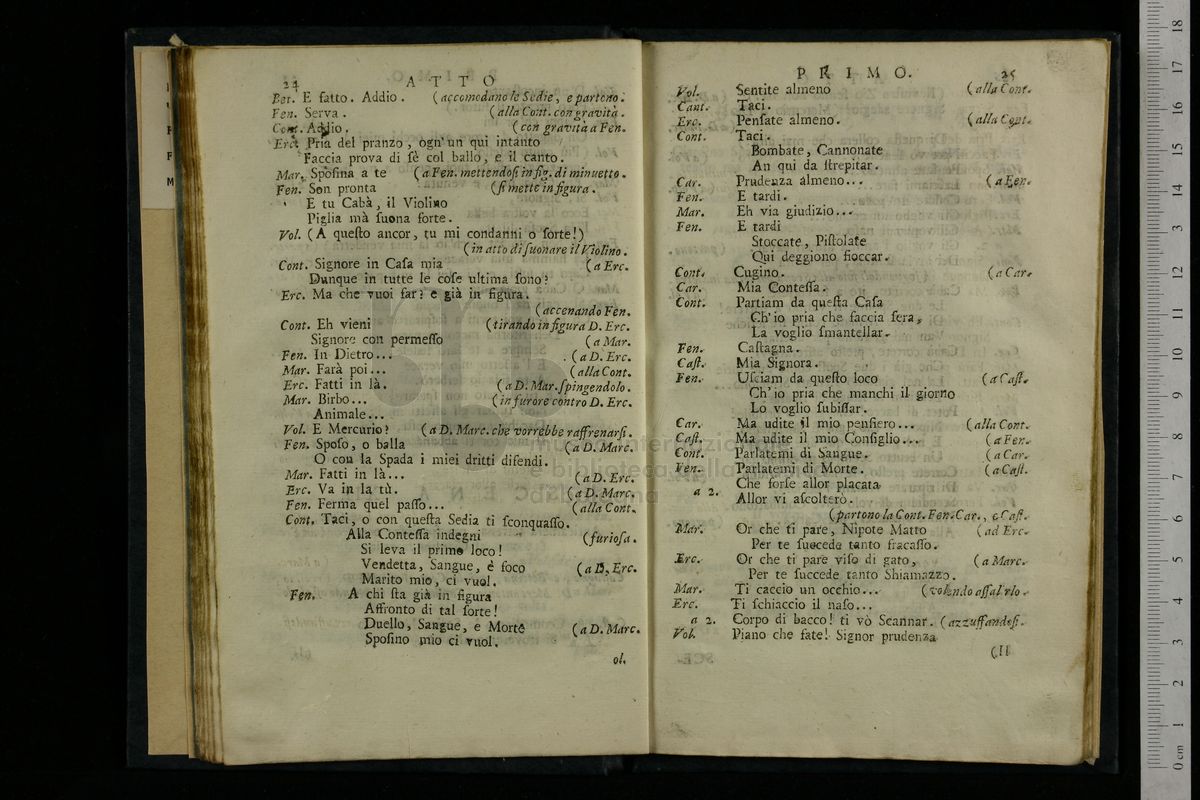 24 ATTO
Ber. E fatto. Addio. (accomodano le Sedie, e partono.
Fen. Serva. (alla Cont. con gravità.
Cont. Addio. (con gravità a Fen.
Erc. Pria del pranzo, ogn'un qui intanto
Faccia prova di ſè col ballo, e il canto.
Mar. Spoſina a te (a Fen. mettendoſi in fig. di minuetto.
Fen. Son pronta (ſi mette in figura.
E tu Cabà, il Violino
Piglia mà ſuona forte.
Vol. (A queſto ancor, tu mi condanni o ſorte!)
(in atto di ſuonare il Violino.
Cont. Signore in Caſa mia (a Erc.
Dunque in tutte le coſe ultima ſono?
Erc. Ma che vuoi far? e già in figura.
(accenando Fen.
Cont. Eh vieni (tirando in figura D. Erc.
Signore con permeſſo (a Mar.
Fen. In Dietro... (a D. Erc.
Mar. Farà poi... (alla Cont.
Erc. Fatti in là. (a D. Mar. ſpingendolo.
Mar. Birbo... (in furore contro D. Erc.
Animale...
Vol. E Mercurio? (a D. Marc. che vorrebbe raffrenarſi.
Fen. Spoſo, o balla (a D. Marc.
O con la Spada i miei dritti difendi.
Mar. Fatti in là... (a D. Erc.
Erc. Va in la tù. (a D. Marc.
Fen. Ferma quel paſſo... (alla Cont.
Cont. Taci, o con queſta Sedia ti ſconquaſſo.
Alla Conteſſa indegni (furioſa.
Si leva il primo loco!
Vendetta, Sangue, è foco (a D. Erc.
Marito mio, ci vuol.
Fen. A chi ſta già in figura
Affronto di tal ſorte!
Duello, Sangue, e Morte (a D. Marc.
Spoſino mio ci vuol.
ol.
PRIMO. 25
Vol. Sentite almeno (alla Cont.
Cant. Taci.
Erc. Penſate almeno. (alla Cont.
Cont. Taci.
Bombate, Cannonate
An qui da ſtrepitar.
Car. Prudenza almeno... (a Fen.
Fen. E tardi.
Mar. Eh via giudizio...
Fen. E tardi
Stoccate, Piſtolate
Qui deggiono fioccar.
Cont. Cugino. (a Car.
Car. Mia Conteſſa.
Cont. Partiam da queſta Caſa
Ch'io pria che faccia ſera,
La voglio ſmantellar.
Fen. Caſtagna.
Caſt. Mia Signora.
Fen. Uſciam da queſto loco (a Caſt.
Ch'io pria che manchi il giorno
Lo voglio ſubiſſar.
Car. Ma udite il mio penſiero... (alla Cont.
Caſt. Ma udite il mio Conſiglio... (a Fen.
Cont. Parlatemi di Sangue. (a Car.
Fen. Parlatemi di Morte. (a Caſt.
Che forſe allor placata
a 2. Allor vi aſcolterò.
(partono la Cont. Fen. Car., e Caſt.
Mar. Or che ti pare, Nipote Matto (ad Erc.
Per te ſuccede tanto fracaſſo.
Erc. Or che ti pare viſo di gato, (a Marc.
Per te ſuccede tanto Shiamazzo.
Mar. Ti caccio un occhio... (volendo aſſal'rlo.
Erc. Ti ſchiaccio il naſo...
a 2. Corpo di bacco! ti vò Scannar. (azzuffandoſi.
Vol. Piano che fate! Signor prudenza